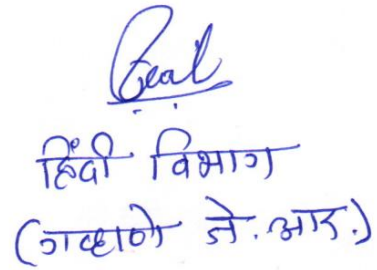 हिंदी विभाग
(गव्हाणे जे.आर.)